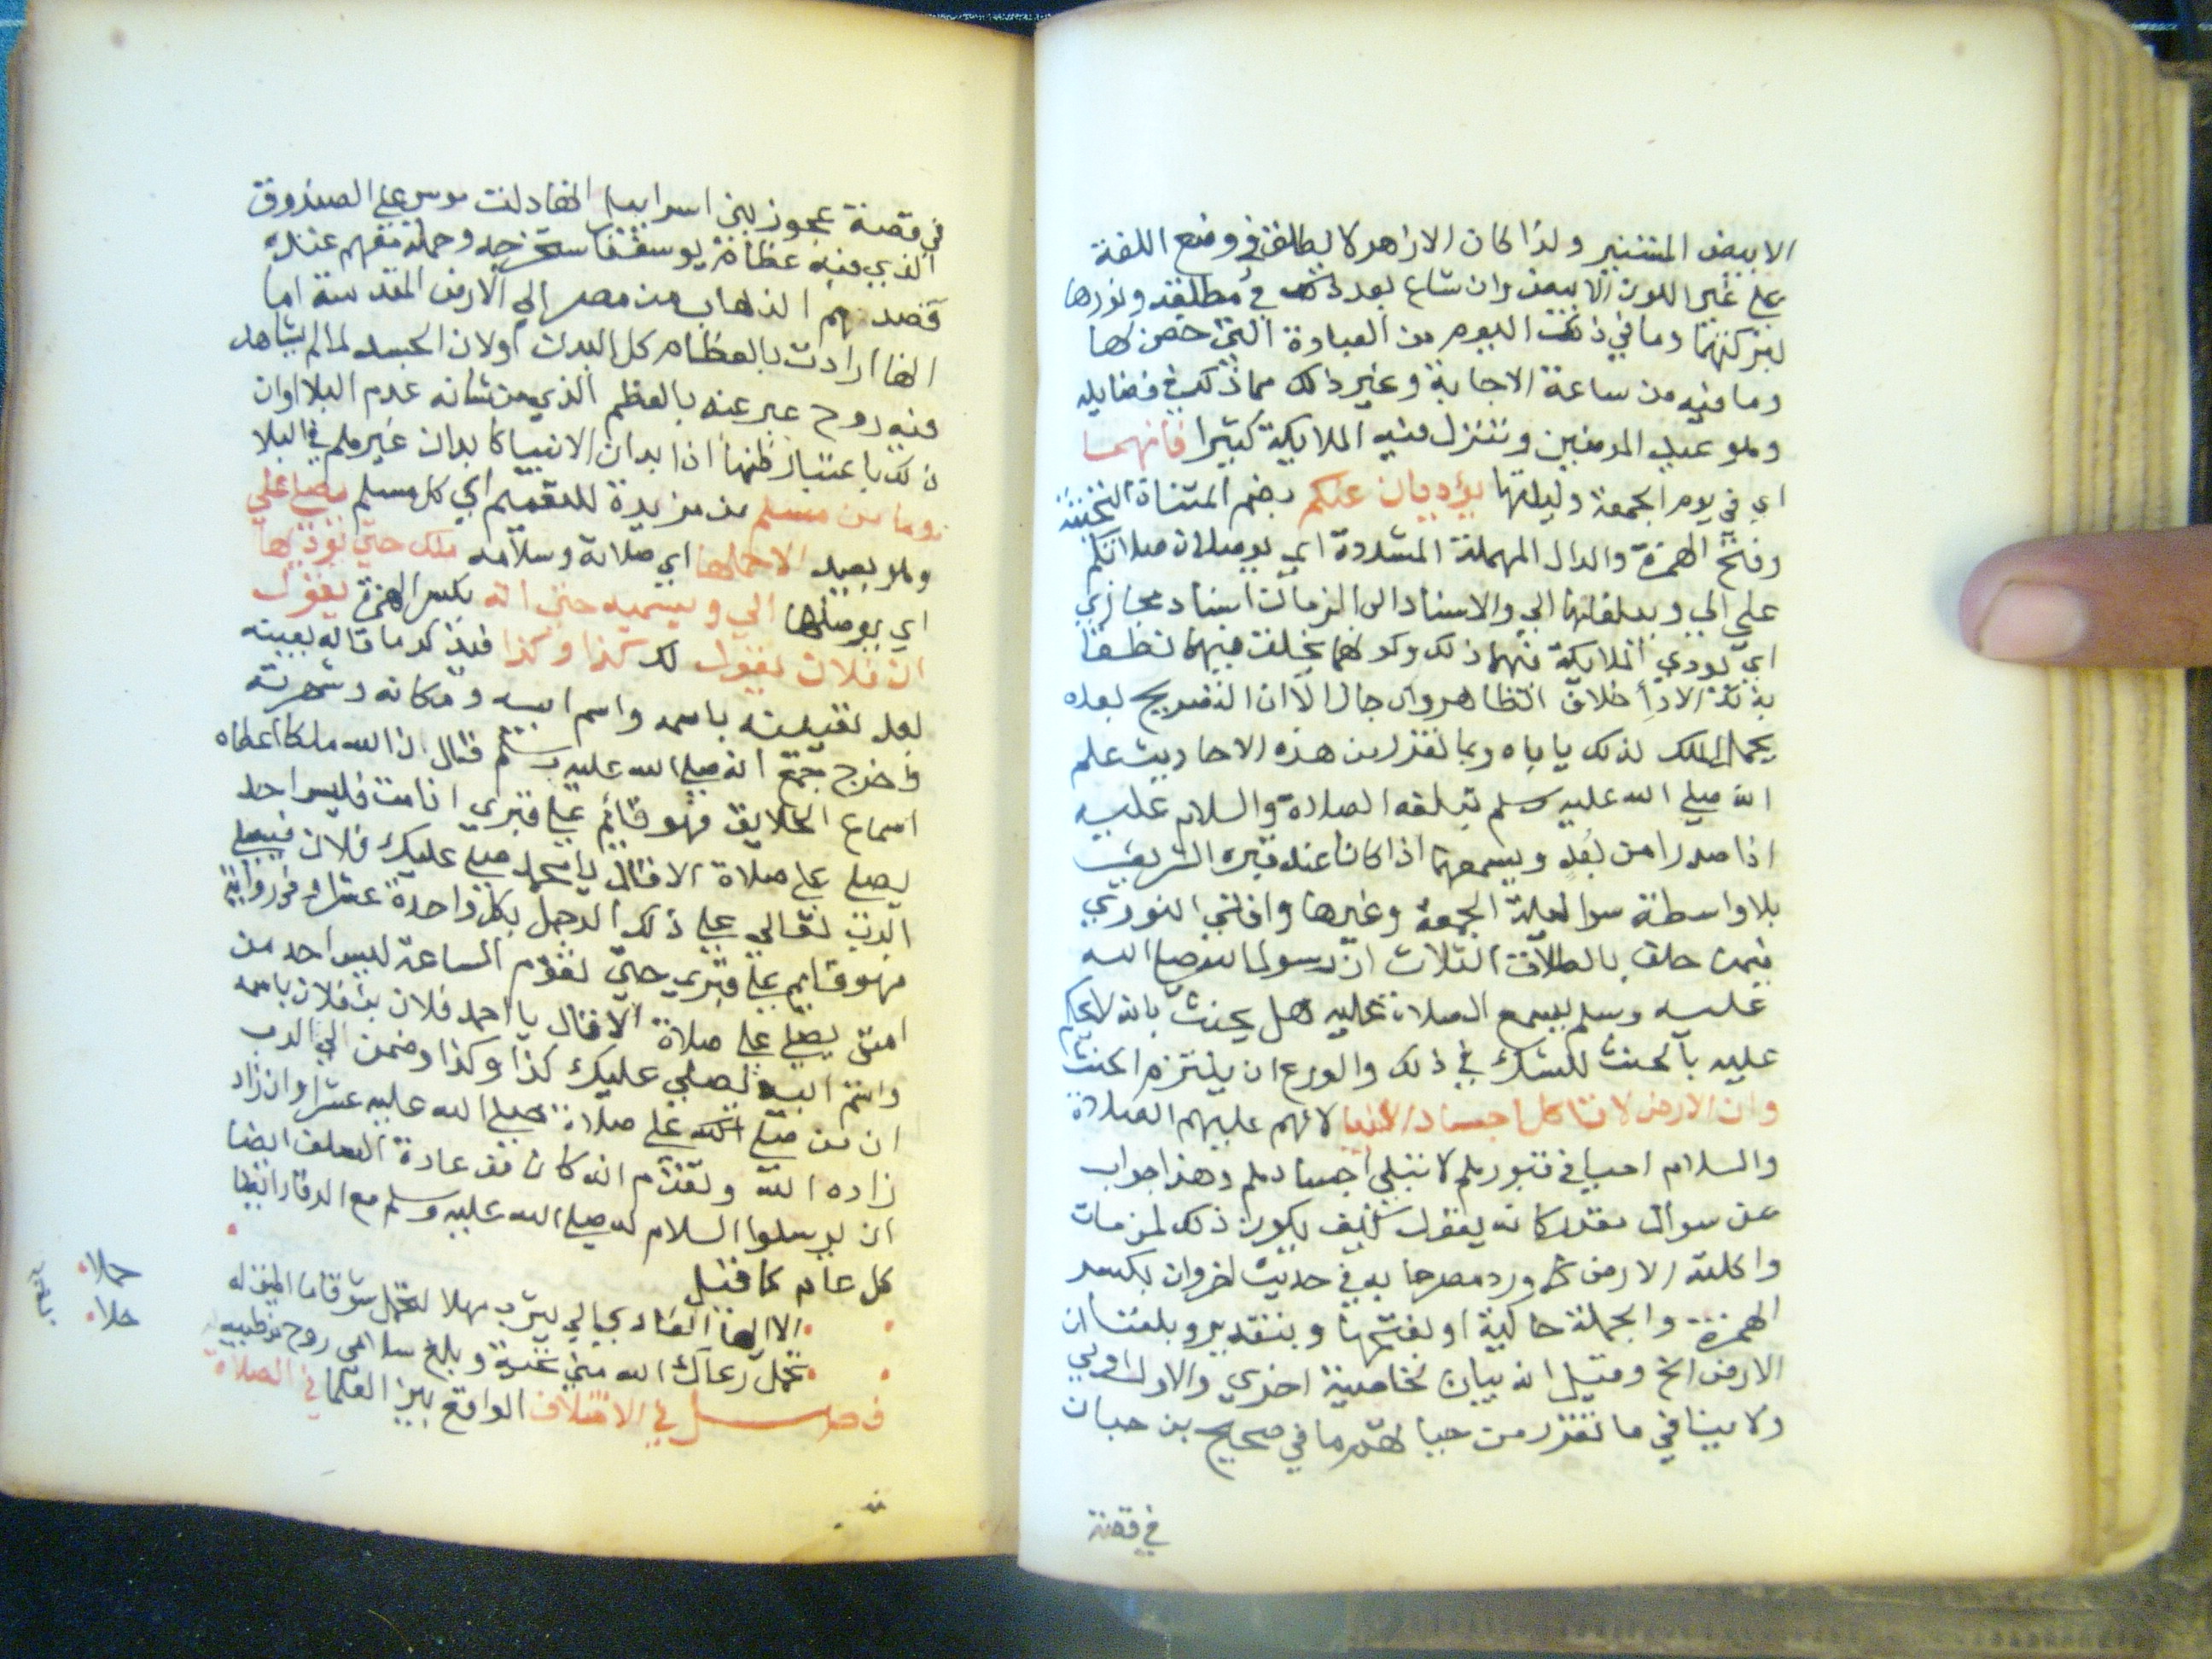 الابيض المستنير ولذا كان الازهر لا يطلق في وضع اللغة
على غير اللون الابيض وان شاع بعد ذلك في مطلقه ونورها
لبركتها وما في ذلك اليوم من العبادة التي خص كها
وما فيه من ساعة الاجابة وغير ذلك مما ذكر في فضايله
وهو عيد المومنين وتتنزل فيه الملايكة كثيرا فانهما
اي في يوم الجمعة وليلتها يؤديان عنكم بضم المثناة التحتية
وفتح الهمزة والدال المهملة المشددة اي يوصلان صلاتكم
علي الي ويبلغانها الي والاسناد الى الزمان اسناد مجازي
اي تودي الملايكة فيهما ذلك وكونهما يخلق فيهما نطقا
بذلك الادا خلاف الظاهر وان جاز الا ان التصريح بعده
بحمل الملك لذلك ياباه وبما تقرر من هذه الاحاديث علم
انه صلى الله عليه وسلم تبلغه الصلاة والسلام عليه
اذا صدرا من بُعد ويسمعهما اذا كانا عند قبره الشريف
بلا واسطة سوا ليلة الجمعة وغيرها وافتي النووي
فيمن حلف بالطلاق الثلاث ان رسول الله صلى الله
عليه وسلم يسمع الصلاة عليه هل يحنث بانه لا يحكم
عليه بالحنث للشك في ذلك والورع ان يلتزم الحنث
وان الارض لا تاكل اجساد الانبيا لانهم عليهم الصلاة
والسلام احيا في قبورهم لا تبلي اجسادهم وهذا جواب
عن سوال مقدر كانه يقول كيف يكون ذلك لمن مات
واكلته الارض كما ورد مصرحا به في حديث اخر وان بكسر
الهمزة والجملة حالية او بفتحها وبتقدير وبلغنا ان
الارض الخ وقيل انه بيان لخاصية اخري والاول اولي
ولا ينافي ما تقرر من حياتهم ما في صحيح بن حبان
في قصة
في قصة عجوز بني اسراييل انها دلت موسى على الصندوق
الذي فيه عظام يوسف فاستخرجه وحمله معهم عند
قصدهم الذهاب من مصر الي الارض المقدسة اما
انها ارادت بالعظام كل البدن او لان الجسد لما لم يشاهد
فيه روح عبر عنه بالعظم الذي من شانه عدم البلا او ان
ذلك باعتبار ظنها ان ابدان الانبيا كابدان غيرهم في البلا
وما من مسلم من مزيدة للتعميم اي كل مسلم يصلي علي
ولو بعيد الا حملها اي صلاته وسلامه ملك حتي يؤديها
اي يوصلها الي ويسميه حتى انه بكسر الهمزة يقول
ان فلان يقول لك كذا وكذا فيذكر ما قاله بعينه
بعد تعيينه باسمه واسم ابيه ومكانه وشهرته
واخرج جمع انه صلى الله عليه وسلم قال ان لله ملكا اعطاه
اسماع الخلايق فهو قائم على قبري اذا مت فليس احد
يصلي علي صلاة الا قال يا محمد صلى عليك فلان فيصلي
الرب تعالي على ذلك الرجل بكل واحدة عشرا وفي رواية
فهو قايم على قبري حتي تقوم الساعة ليس احد من
امتى يصلي علي صلاة الا قال يا احمد فلان بن فلان باسمه
واسم ابيه يصلي عليك كذا وكذا وضمن الي الرب
ان من صلى علي صلاة صلى الله عليه عشرا وان زاد
زاده الله وتقدم انه كان من عادة السلف ايضا
ان يرسلوا السلام له صلى الله عليه وسلم مع الزوار ايضا
كل عام كما قيل
الا ايها الغادي الي يثرب مهلا لتحمل شوقا ما اطيق له حملا
تحمل رعاك الله مني تحية وبلغ سلامي روح من طيبه حلا
فصل في الاختلاف الواقع بين العلما في الصلاة